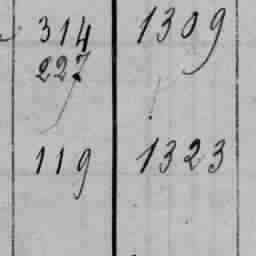 314 1309
227
119 1323